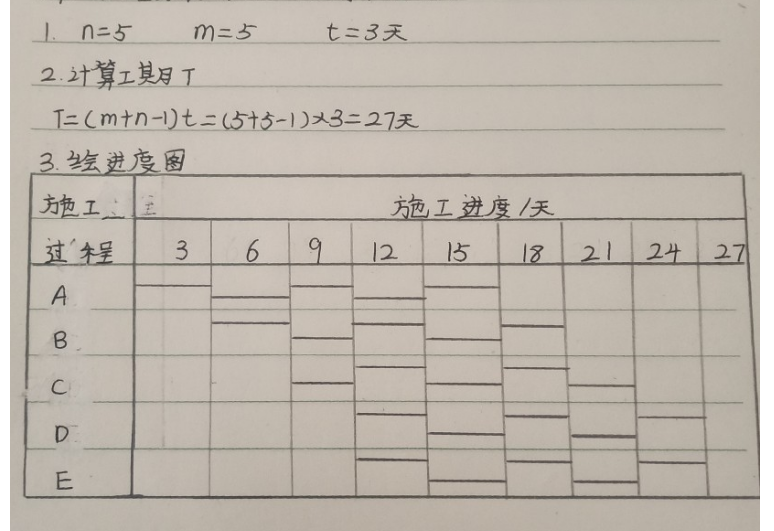 1. n=5 m=5 t=3天
2.计算工期T
T=(m+n-1)t=(5+5-1)×3=27天
3.绘进度图
施工 施工进度/天
过程 3 6 9 12 15 18 21 24 27
A
B
C
D
E